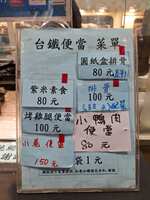 台鐵便當 菜單
圓紙盒排骨
80元
紫米素食
80元
排骨
100元
烤雞腿便當
100元
小鴨肉
便當
80元
小卷便當
150元
袋1元